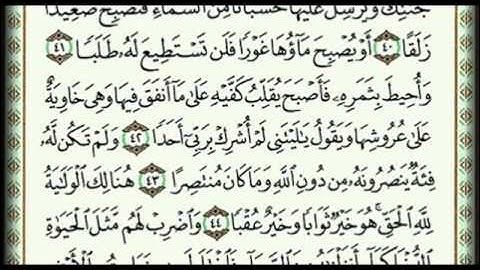 جَنَّتِكَ وَيُرْسِلَ عَلَيْهَا حُسْبَانًا مِّنَ السَّمَاءِ فَتُصْبِحَ صَعِيدًا
زَلَقًا ﴿٤٠﴾ أَوْ يُصْبِحَ مَاؤُهَا غَوْرًا فَلَن تَسْتَطِيعَ لَهُ طَلَبًا ﴿٤١﴾
وَأُحِيطَ بِثَمَرِهِ فَأَصْبَحَ يُقَلِّبُ كَفَّيْهِ عَلَىٰ مَا أَنفَقَ فِيهَا وَهِيَ خَاوِيَةٌ
عَلَىٰ عُرُوشِهَا وَيَقُولُ يَا لَيْتَنِي لَمْ أُشْرِكْ بِرَبِّي أَحَدًا ﴿٤٢﴾ وَلَمْ تَكُن لَّهُ
فِئَةٌ يَنصُرُونَهُ مِن دُونِ اللَّهِ وَمَا كَانَ مُنتَصِرًا ﴿٤٣﴾ هُنَالِكَ الْوَلَايَةُ
لِلَّهِ الْحَقِّ هُوَ خَيْرٌ ثَوَابًا وَخَيْرٌ عُقْبًا ﴿٤٤﴾ وَاضْرِبْ لَهُم مَّثَلَ الْحَيَاةِ